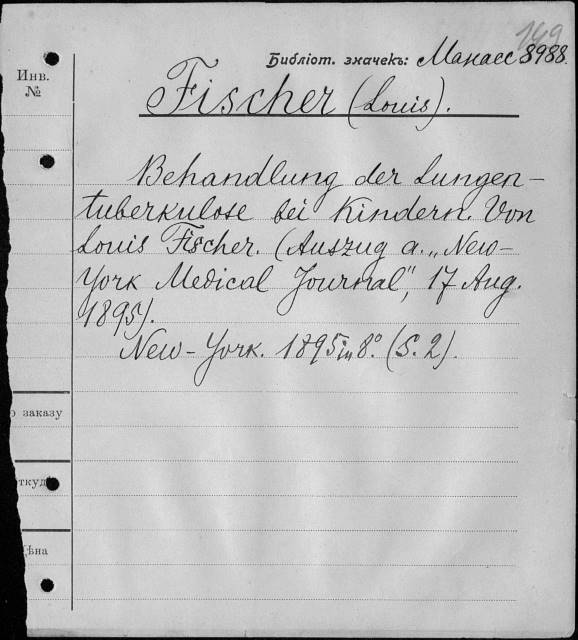 149
Библіот. значекъ: Манасс 8988.
Инв.
№
Fischer (Louis).
Behandlung der Lungen-
tuberkulose bei Kindern. Von
Louis Fischer. (Auszug a. „New-
York Medical Journal", 17 Aug.
1895).
New-York. 1895 in 8°. (S. 2).
о заказу
ткуда
Цѣна